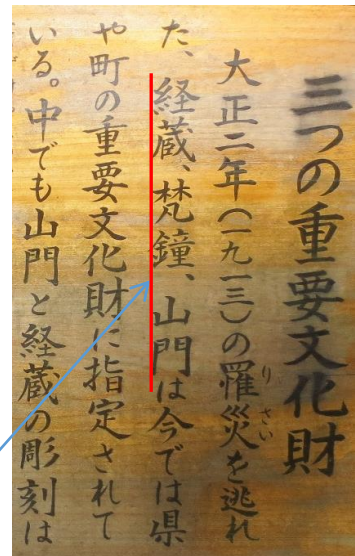 三つの重要文化財
大正二年(一九一三)の罹災を逃れ
りさい
た、経蔵、梵鐘、山門は今では県
や町の重要文化財に指定されて
いる。中でも山門と経蔵の彫刻は